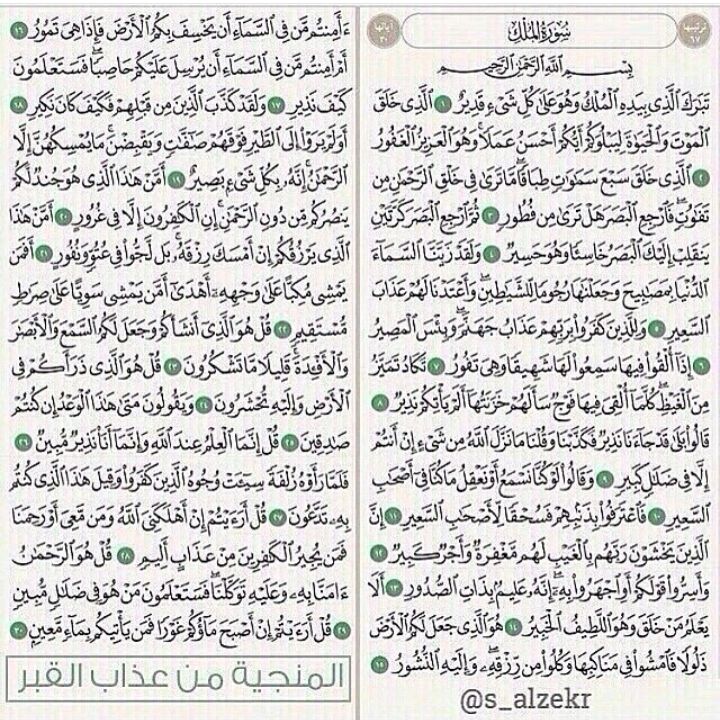 ترتيبها ٦٧
سُورَةُ المُلْكِ
آياتها ٣٠
بِسْمِ اللَّهِ الرَّحْمَٰنِ الرَّحِيمِ
تَبَٰرَكَ الَّذِى بِيَدِهِ الْمُلْكُ وَهُوَ عَلَىٰ كُلِّ شَىْءٍ قَدِيرٌ ١ الَّذِى خَلَقَ
الْمَوْتَ وَالْحَيَوٰةَ لِيَبْلُوَكُمْ أَيُّكُمْ أَحْسَنُ عَمَلًا وَهُوَ الْعَزِيزُ الْغَفُورُ
٢ الَّذِى خَلَقَ سَبْعَ سَمَٰوَٰتٍ طِبَاقًا مَّا تَرَىٰ فِى خَلْقِ الرَّحْمَٰنِ مِن
تَفَٰوُتٍ فَارْجِعِ الْبَصَرَ هَلْ تَرَىٰ مِن فُطُورٍ ٣ ثُمَّ ارْجِعِ الْبَصَرَ كَرَّتَيْنِ
يَنقَلِبْ إِلَيْكَ الْبَصَرُ خَاسِئًا وَهُوَ حَسِيرٌ ٤ وَلَقَدْ زَيَّنَّا السَّمَاءَ
الدُّنْيَا بِمَصَٰبِيحَ وَجَعَلْنَٰهَا رُجُومًا لِّلشَّيَٰطِينِ وَأَعْتَدْنَا لَهُمْ عَذَابَ
السَّعِيرِ ٥ وَلِلَّذِينَ كَفَرُوا بِرَبِّهِمْ عَذَابُ جَهَنَّمَ وَبِئْسَ الْمَصِيرُ
٦ إِذَا أُلْقُوا فِيهَا سَمِعُوا لَهَا شَهِيقًا وَهِىَ تَفُورُ ٧ تَكَادُ تَمَيَّزُ
مِنَ الْغَيْظِ كُلَّمَا أُلْقِىَ فِيهَا فَوْجٌ سَأَلَهُمْ خَزَنَتُهَا أَلَمْ يَأْتِكُمْ نَذِيرٌ ٨
قَالُوا بَلَىٰ قَدْ جَاءَنَا نَذِيرٌ فَكَذَّبْنَا وَقُلْنَا مَا نَزَّلَ اللَّهُ مِن شَىْءٍ إِنْ أَنتُمْ
إِلَّا فِى ضَلَٰلٍ كَبِيرٍ ٩ وَقَالُوا لَوْ كُنَّا نَسْمَعُ أَوْ نَعْقِلُ مَا كُنَّا فِى أَصْحَٰبِ
السَّعِيرِ ١٠ فَاعْتَرَفُوا بِذَنۢبِهِمْ فَسُحْقًا لِّأَصْحَٰبِ السَّعِيرِ ١١ إِنَّ
الَّذِينَ يَخْشَوْنَ رَبَّهُم بِالْغَيْبِ لَهُم مَّغْفِرَةٌ وَأَجْرٌ كَبِيرٌ ١٢
وَأَسِرُّوا قَوْلَكُمْ أَوِ اجْهَرُوا بِهِ إِنَّهُ عَلِيمٌۢ بِذَاتِ الصُّدُورِ ١٣ أَلَا
يَعْلَمُ مَنْ خَلَقَ وَهُوَ اللَّطِيفُ الْخَبِيرُ ١٤ هُوَ الَّذِى جَعَلَ لَكُمُ الْأَرْضَ
ذَلُولًا فَامْشُوا فِى مَنَاكِبِهَا وَكُلُوا مِن رِّزْقِهِ وَإِلَيْهِ النُّشُورُ ١٥
@s_alzekr
ءَأَمِنتُم مَّن فِى السَّمَاءِ أَن يَخْسِفَ بِكُمُ الْأَرْضَ فَإِذَا هِىَ تَمُورُ ١٦
أَمْ أَمِنتُم مَّن فِى السَّمَاءِ أَن يُرْسِلَ عَلَيْكُمْ حَاصِبًا فَسَتَعْلَمُونَ
كَيْفَ نَذِيرِ ١٧ وَلَقَدْ كَذَّبَ الَّذِينَ مِن قَبْلِهِمْ فَكَيْفَ كَانَ نَكِيرِ ١٨
أَوَلَمْ يَرَوْا إِلَى الطَّيْرِ فَوْقَهُمْ صَٰفَّٰتٍ وَيَقْبِضْنَ مَا يُمْسِكُهُنَّ إِلَّا
الرَّحْمَٰنُ إِنَّهُ بِكُلِّ شَىْءٍۭ بَصِيرٌ ١٩ أَمَّنْ هَٰذَا الَّذِى هُوَ جُندٌ لَّكُمْ
يَنصُرُكُم مِّن دُونِ الرَّحْمَٰنِ إِنِ الْكَٰفِرُونَ إِلَّا فِى غُرُورٍ ٢٠ أَمَّنْ هَٰذَا
الَّذِى يَرْزُقُكُمْ إِنْ أَمْسَكَ رِزْقَهُ بَل لَّجُّوا فِى عُتُوٍّ وَنُفُورٍ ٢١ أَفَمَن
يَمْشِى مُكِبًّا عَلَىٰ وَجْهِهِ أَهْدَىٰ أَمَّن يَمْشِى سَوِيًّا عَلَىٰ صِرَٰطٍ
مُّسْتَقِيمٍ ٢٢ قُلْ هُوَ الَّذِى أَنشَأَكُمْ وَجَعَلَ لَكُمُ السَّمْعَ وَالْأَبْصَٰرَ
وَالْأَفْـِٔدَةَ قَلِيلًا مَّا تَشْكُرُونَ ٢٣ قُلْ هُوَ الَّذِى ذَرَأَكُمْ فِى
الْأَرْضِ وَإِلَيْهِ تُحْشَرُونَ ٢٤ وَيَقُولُونَ مَتَىٰ هَٰذَا الْوَعْدُ إِن كُنتُمْ
صَٰدِقِينَ ٢٥ قُلْ إِنَّمَا الْعِلْمُ عِندَ اللَّهِ وَإِنَّمَا أَنَا نَذِيرٌ مُّبِينٌ ٢٦
فَلَمَّا رَأَوْهُ زُلْفَةً سِيٓـَٔتْ وُجُوهُ الَّذِينَ كَفَرُوا وَقِيلَ هَٰذَا الَّذِى كُنتُم
بِهِ تَدَّعُونَ ٢٧ قُلْ أَرَءَيْتُمْ إِنْ أَهْلَكَنِىَ اللَّهُ وَمَن مَّعِىَ أَوْ رَحِمَنَا
فَمَن يُجِيرُ الْكَٰفِرِينَ مِنْ عَذَابٍ أَلِيمٍ ٢٨ قُلْ هُوَ الرَّحْمَٰنُ
ءَامَنَّا بِهِ وَعَلَيْهِ تَوَكَّلْنَا فَسَتَعْلَمُونَ مَنْ هُوَ فِى ضَلَٰلٍ مُّبِينٍ
٢٩ قُلْ أَرَءَيْتُمْ إِنْ أَصْبَحَ مَاؤُكُمْ غَوْرًا فَمَن يَأْتِيكُم بِمَاءٍ مَّعِينٍ ٣٠
المنجية من عذاب القبر